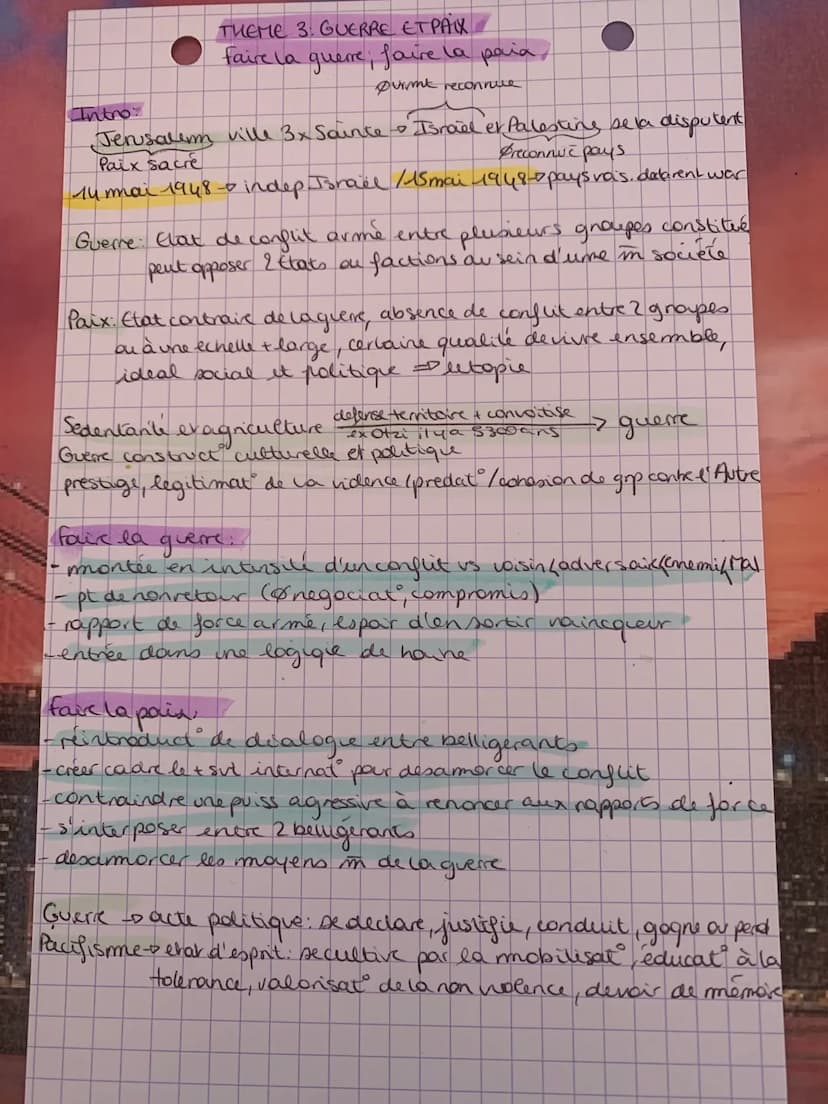 THEME 3: GUERRE ET PAIX
faire la guerre, faire la paix
Ø vrmt reconnue
Intro:
Jerusalem ville 3x Sainte → Israël et Palestine se la disputent
Paix sacré
Ø reconnue pays
14 mai 1948 → indep Israël / 15 mai 1948 → pays vois. datarent war
Guerre: Etat de conflit armé entre plusieurs groupes constitué
peut opposer 2 Etats ou factions au sein d'une m̄ société
Paix: Etat contraire de la guerre, absence de conflit entre 2 groupes
ou à une échelle + large, certaine qualité de vivre ensemble,
ideal social et politique ⇒ utopie
Sedentarité et agriculture defense territoire + convoitise > guerre
ex Otzi il y a 5300 ans
Guerre construct° culturelle et politique
prestige, legitimat° de la violence (predat°/cohesion de grp contre l'Autre
faire la guerre:
- montée en intensité d'un conflit vs voisin/adversaire/ennemi/
- pt de non retour (Ø negociat°, compromis)
- rapport de force armé, espoir d'en sortir vainqueur
- entrée dans une logique de haine
faire la paix:
- réintroduct° de dialogue entre belligerants
- créer cadre le + svt internat° pour desamorcer le conflit
- contraindre une puiss agressive à renoncer aux rapports de force
- s'interposer entre 2 belligérants
- desamorcer les moyens m̄ de la guerre
Guerre → acte politique: se declare, justifie, conduit, gagne ou perd
Pacifisme → etat d'esprit: se cultive par la mobilisat°, éducat° à la
tolerance, valorisat° de la non violence, devoir de mémoire